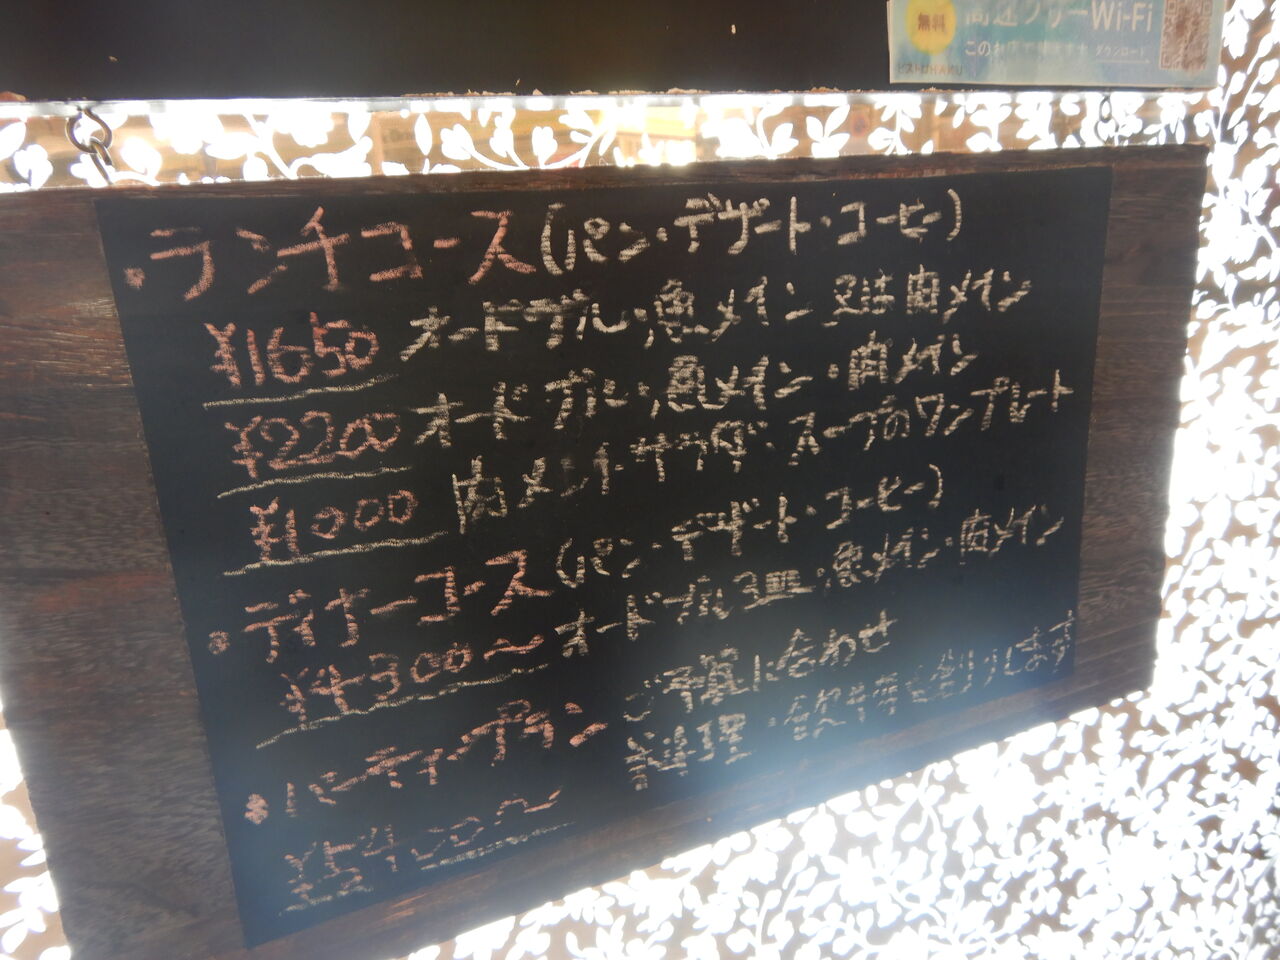 無料 高速フリーWi-Fi
ダウンロード
ビストロHAKU
・ランチコース(パン・デザート・コーヒー)
¥1650 オードブル・魚メイン又は肉メイン
¥2200 オードブル・魚メイン・肉メイン
¥1000 肉メイン・サラダ・スープのワンプレート
・ディナーコース(パン・デザート・コーヒー)
¥4300〜オードブル3皿・魚メイン・肉メイン
・パーティープラン ご予算に合わせ
¥5400〜 料理・をお作りします